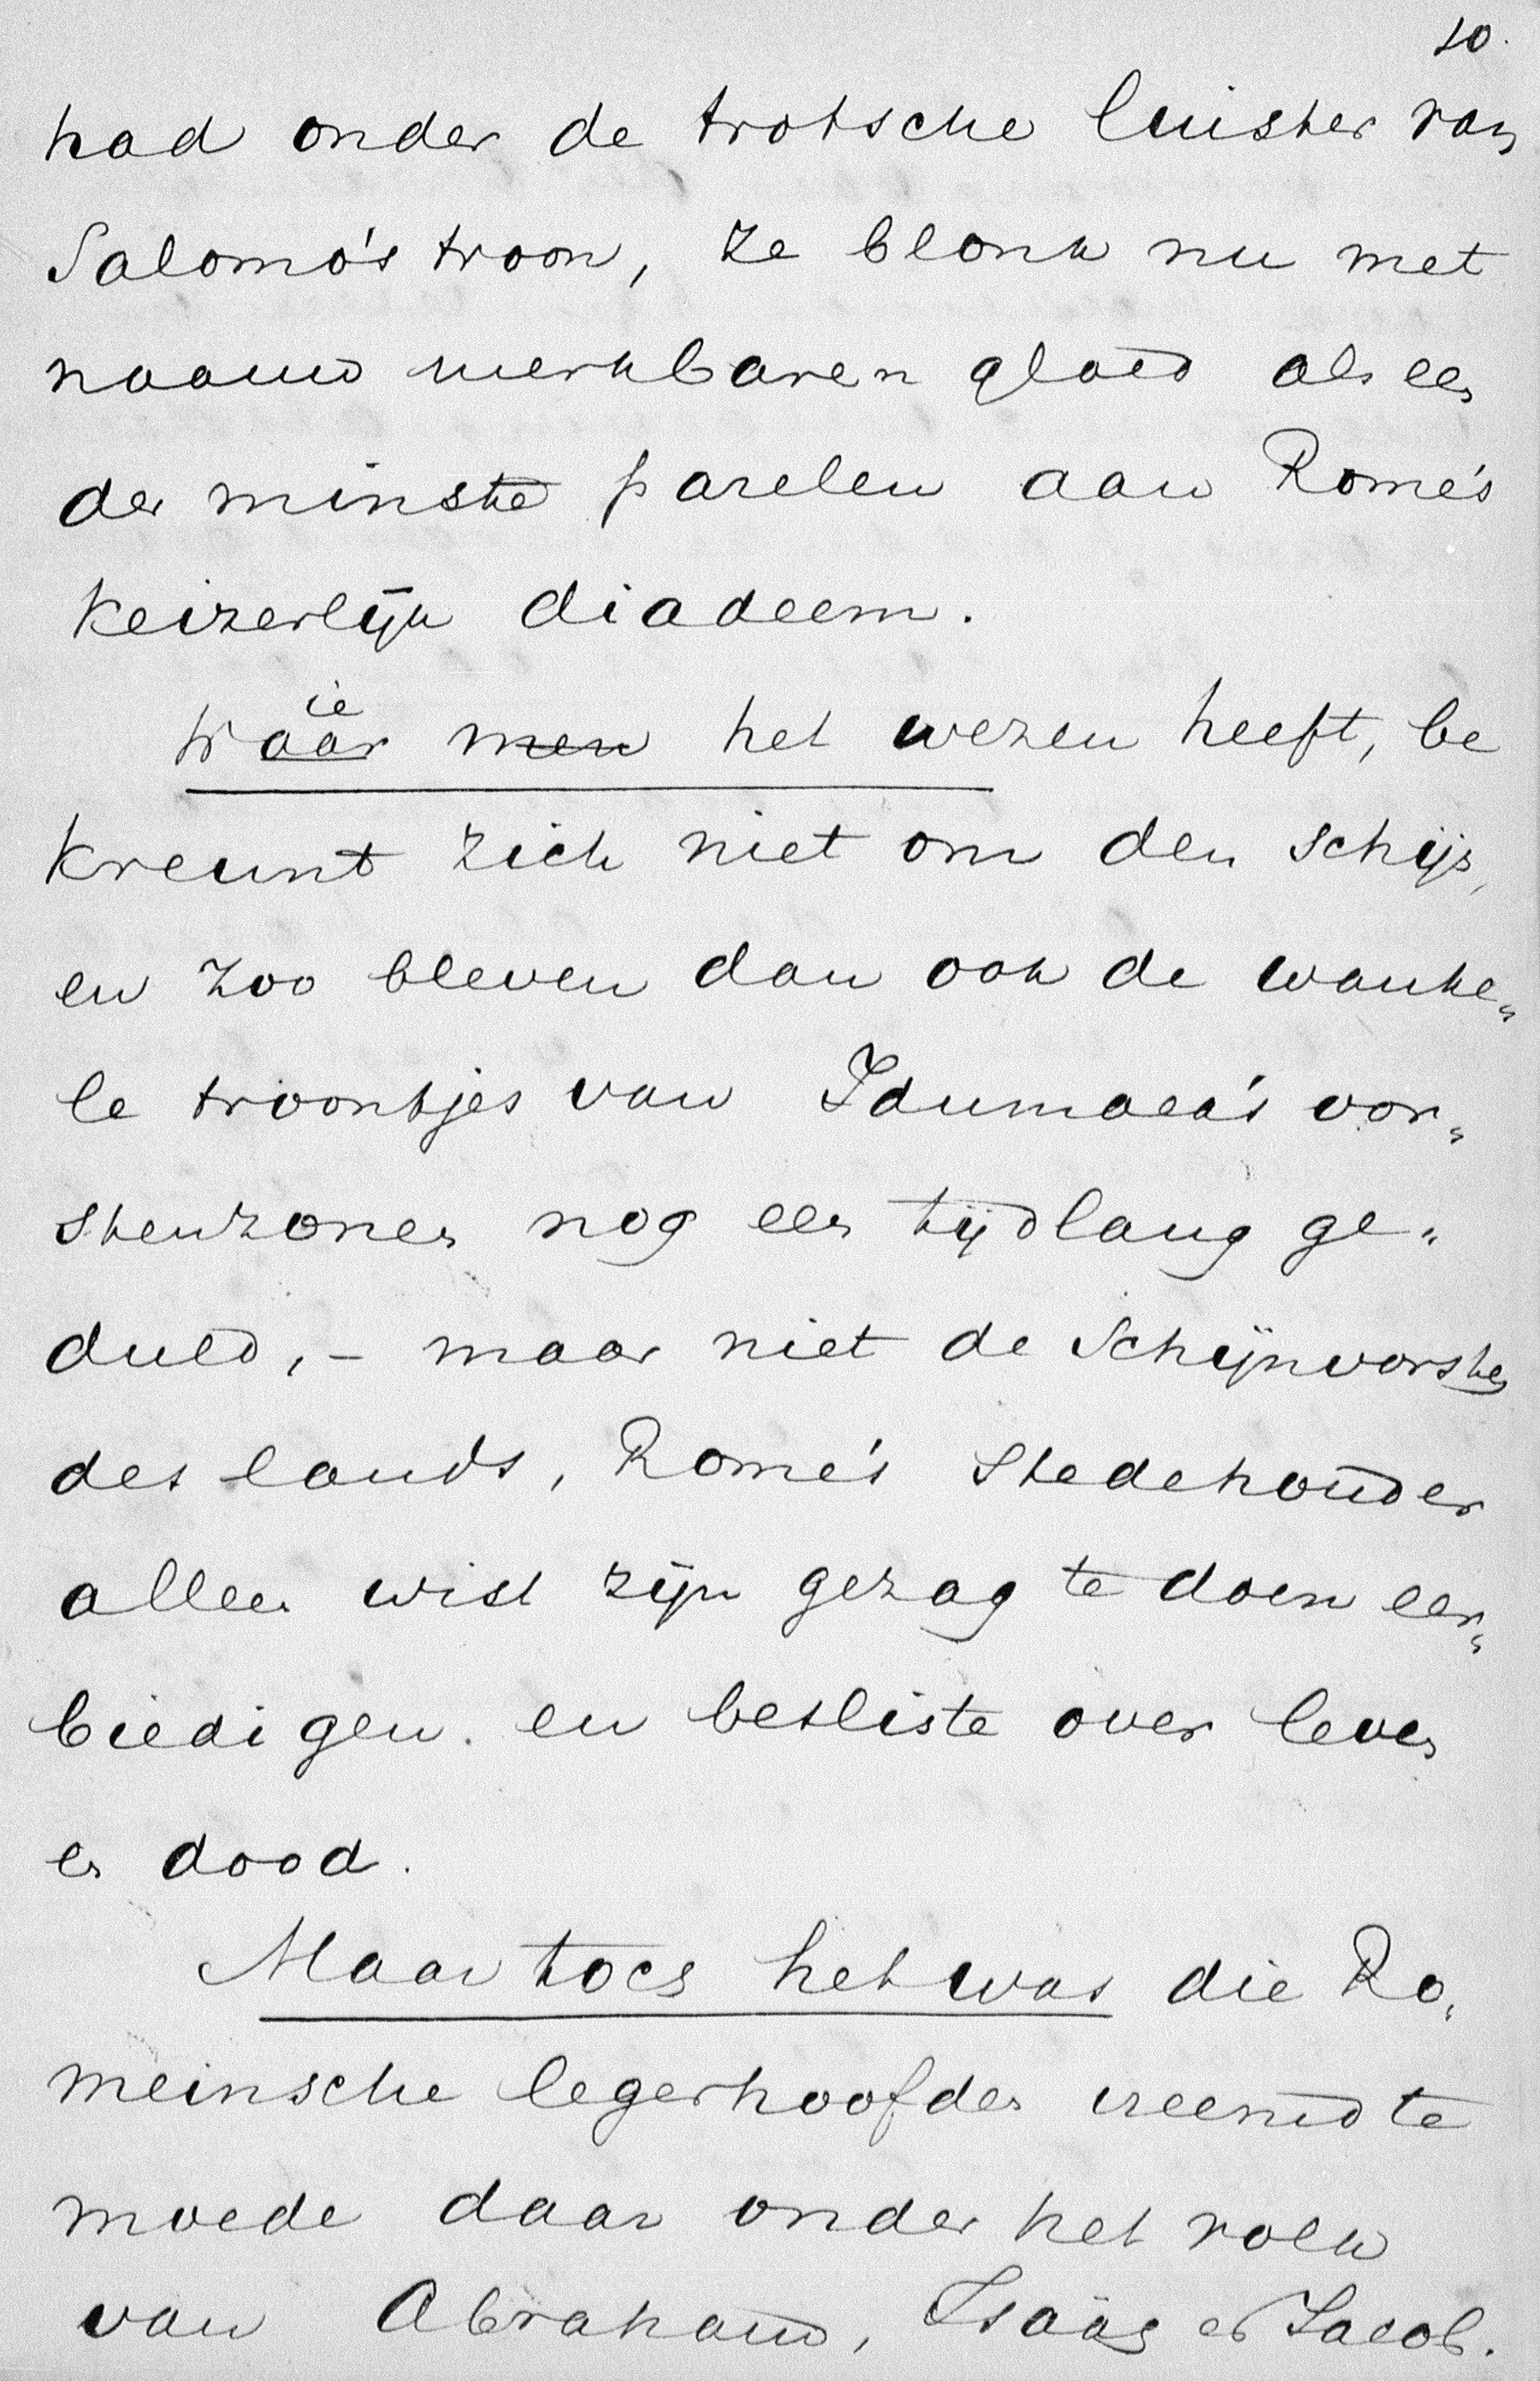 10.
had onder de trotsche luister van
Salomo's troon, ze blonk nu met
naauw merkbaren gloed als een
der minste parelen aan Rome's
keizerlijk diadeem.
ie
Waar men het wezen heeft, be
kreunt zich niet om den schijn,
en zoo bleven dan ook de wanke„
le troontjes van Idumaea's vor„
stenzonen nog een tijdlang ge„
duld, – maar niet de Schijnvorsten
des lands, Rome's Stedehouder
alleen wist zijn gezag te doen eer„
biedigen en besliste over leven
en dood.
Maar toch het was die Ro„
meinsche legerhoofden vreemd te
moede daar onder het volk
van Abraham, Isaäc en Jacob.